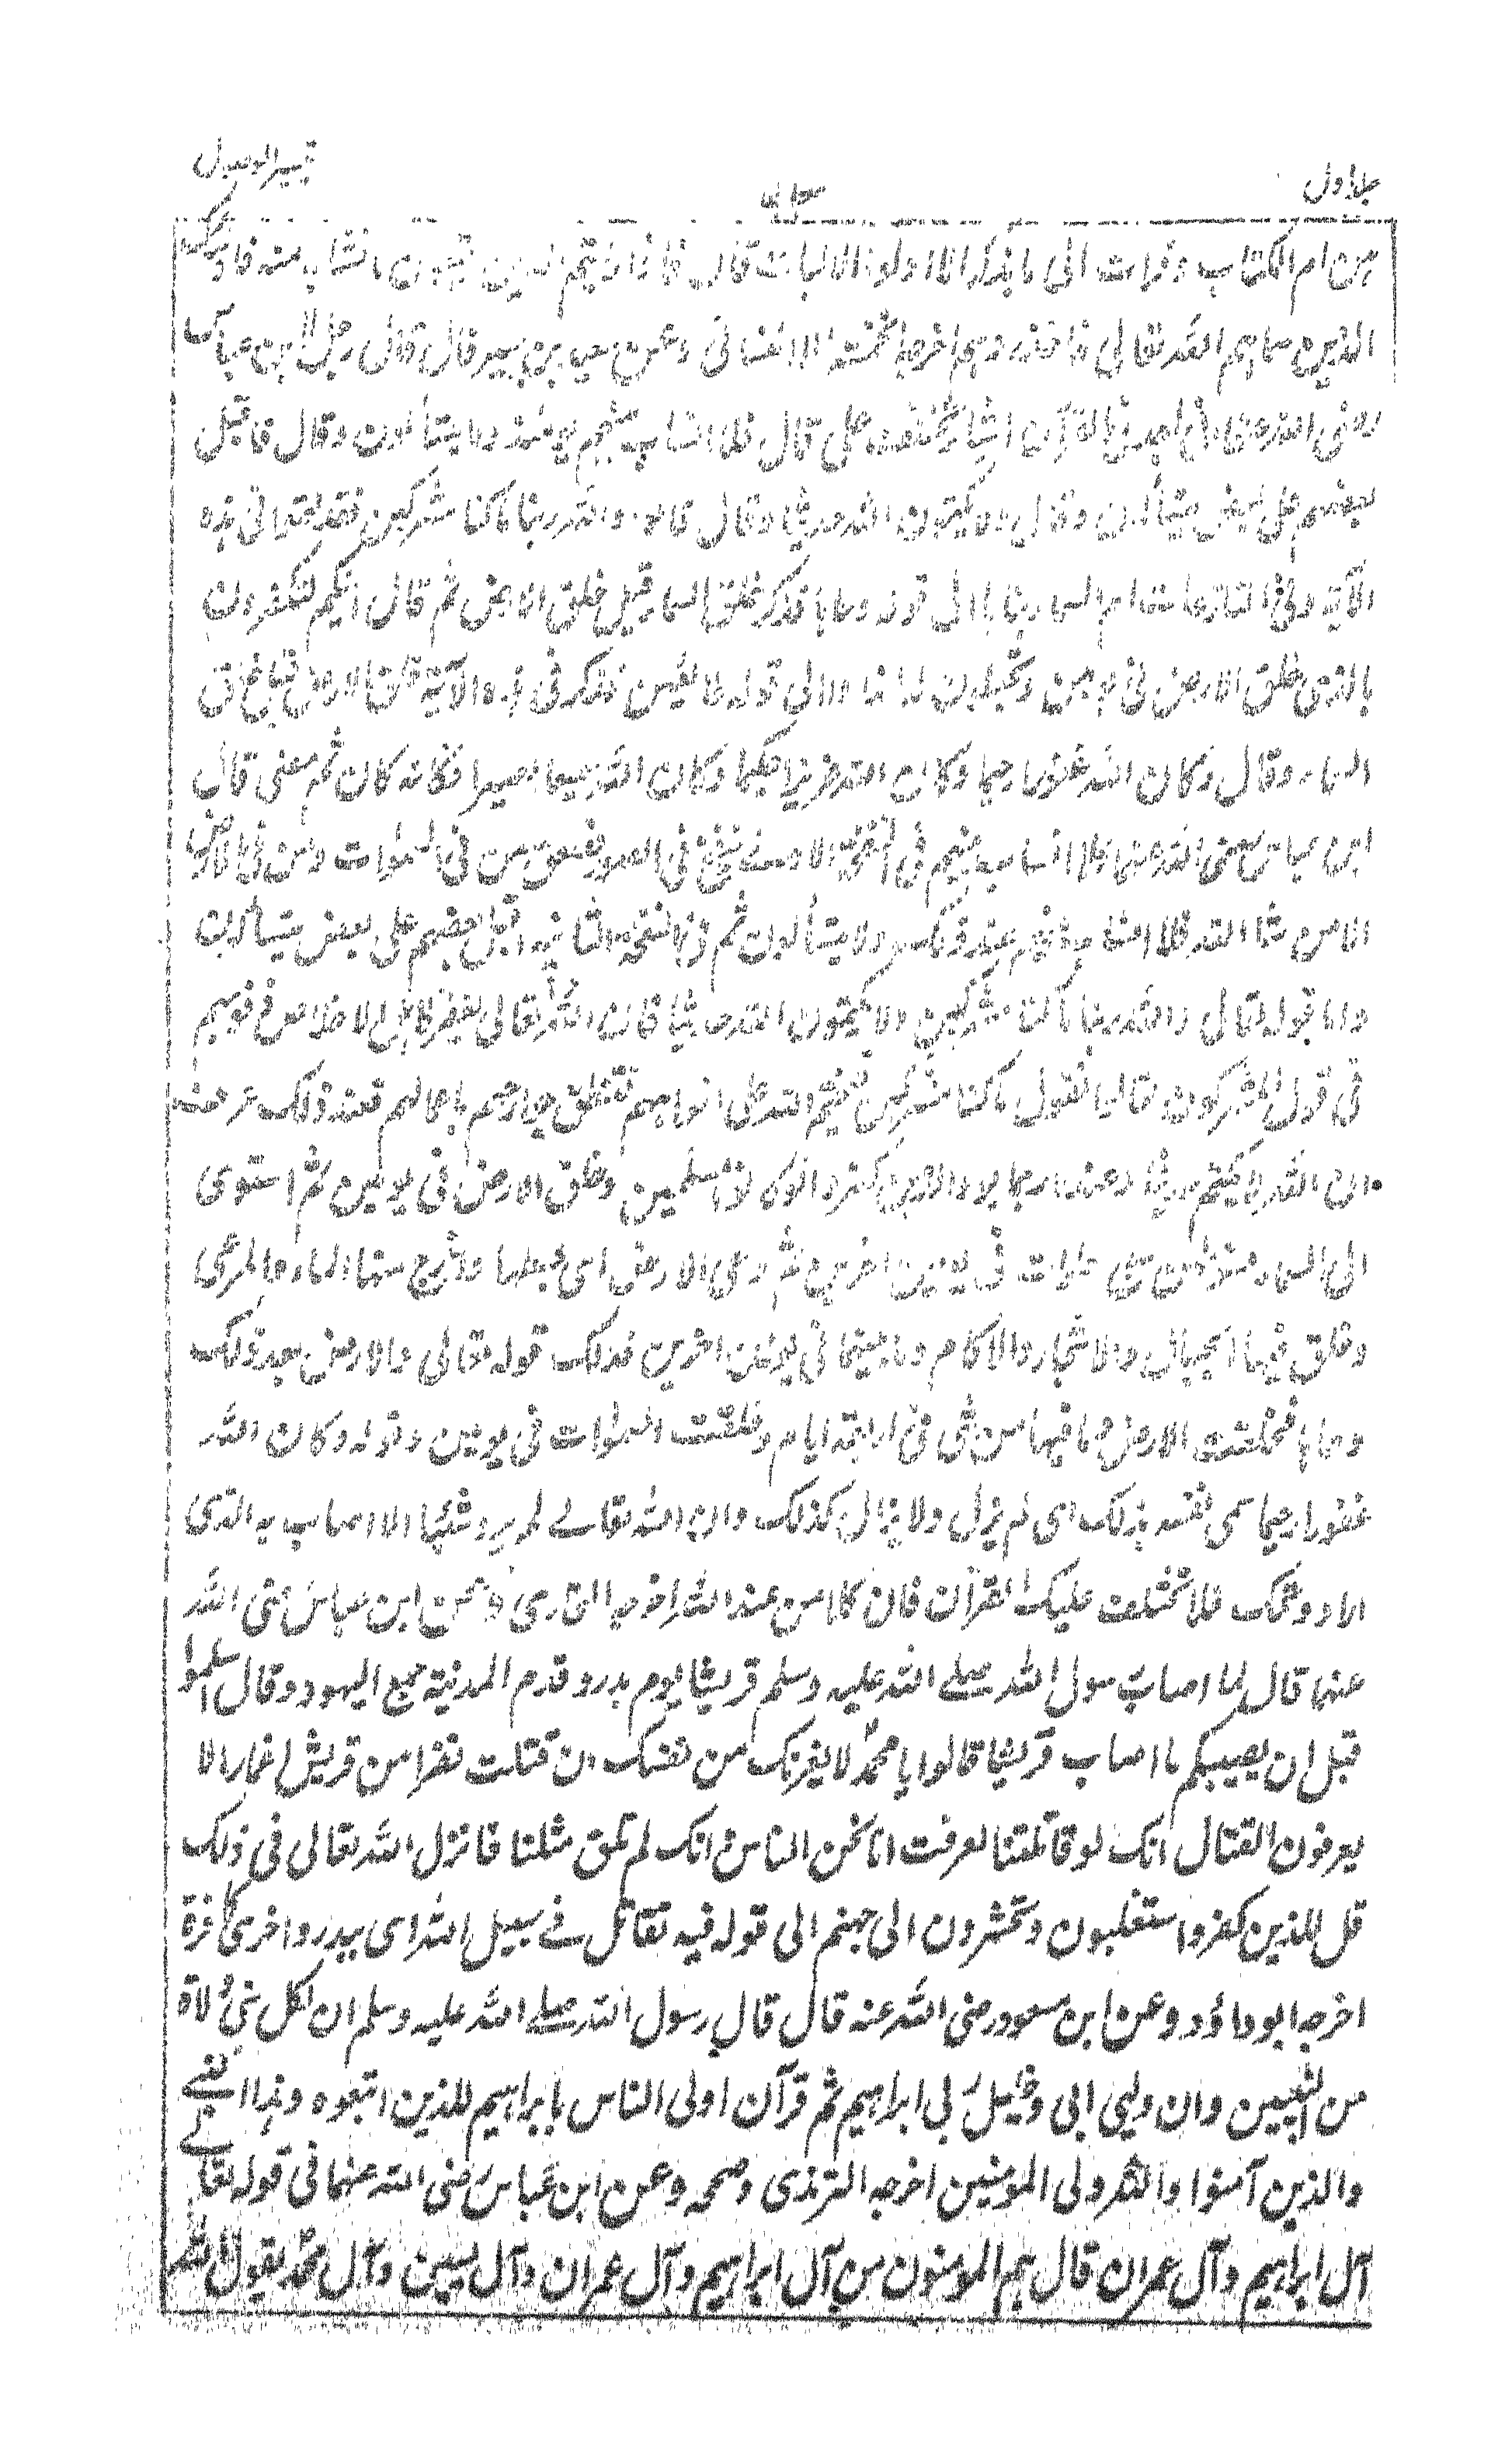 تيسير الوصول
جلد اول
من ام الكتاب وقرأت الى ما يذكر الا اولوا الالباب قال فاذا رأيتم الذين يتبعون ما تشابه منه فاولئك
الذين سماهم الله تعالى فاحذروهم اخرجه الخمسة الا النسائى وعن سعيد بن جبير قال قال رجل لابن عباس
رضى الله عنهما انى اجد فى القرآن اشيا تختلف على قال فلا انساب بينهم يومئذ ولا يتسألون وقال فاقبل
بعضهم على بعض يتسألون وقال ولا يكتمون الله حديثا وقال قالوا والله ربنا ما كنا مشركين فقد كتموا فى هذه
الآية وفى النازعات ام السماء بناها الى قوله دحاها فذكر خلق السماء قبل خلق الارض ثم قال ائنكم لتكفرون
بالذى خلق الارض فى يومين وتجعلون له اندادا الى قوله طائعين فذكر فى هذه الآية خلق الارض قبل خلق
السماء وقال وكان الله غفورا رحيما وكان الله عزيزا حكيما وكان الله سميعا بصيرا فكانه كان ثم مضى قال
ابن عباس رضى الله عنهما فلا انساب بينهم فى النفخة الاولى ينفخ فى الصور فصعق من فى السموات ومن فى الارض
الا من شاء الله فلا انساب بينهم عند ذلك ولا يتسألون ثم فى النفخة الثانية اقبل بعضهم على بعض يتسألون
واما قوله تعالى والله ربنا ما كنا مشركين ولا يكتمون الله حديثا فان الله تعالى يغفر لاهل الاخلاص ذنوبهم
فيقول المشركون تعالوا نقول ما كنا مشركين فيختم الله على افواههم فتنطق جوارحهم باعمالهم فعند ذلك عرف
ان الله لا يكتم حديثا وعنده ربما يود الذين كفروا لو كانوا مسلمين وخلق الارض فى يومين ثم استوى
الى السماء فسواهن سبع سموات فى يومين اخرين ثم دحى الارض اى بسطها واخرج منها الماء والمرعى
وخلق فيها الجبال والاشجار والآكام وما بينهما فى يومين اخرين فذلك قوله تعالى والارض بعد ذلك
دحاها فخلقت الارض وما فيها من شى فى اربعة ايام وخلقت السموات فى يومين وقوله وكان الله
غفورا رحيما سمى نفسه بذلك اى لم يزل ولا يزال كذلك وان الله تعالے لم يرد شيئا الا اصاب به الذى
اراد ويحك فلا تختلف عليك القرآن فان كلا من عند الله اخرجه البخارى وعن ابن عباس رضى الله
عنهما قال لما اصاب رسول الله صلے الله عليه وسلم قريشا يوم بدر وقدم المدينة جمع اليهود وقال اسلموا
قبل ان يصيبكم ما اصاب قريشا قالوا يا محمد لا يغرنك من نفسك ان قتلت نفرا من قريش اغمارا لا
يعرفون القتال انك لو قاتلتنا لعرفت انا نحن الناس وانك لم تلق مثلنا فانزل الله تعالى فى ذلك
قل للذين كفروا ستغلبون وتحشرون الى جهنم الى قوله فيه تقاتل فے سبيل الله اى ببدر واخرى كافرة
اخرجه ابو داؤد وعن ابن مسعود رضى الله عنه قال قال رسول الله صلے الله عليه وسلم ان لكل نبى ولاة
من النبيين وان وليى ابى وخليل ربى ابراهيم ثم قرأ ان اولى الناس بابراهيم للذين اتبعوه وهذا النبے
والذين آمنوا والله ولى المومنين اخرجه الترمذى وصححه وعن ابن عباس رضى الله عنهما فى قوله تعالے
آل ابراهيم وآل عمران قال هم المومنون من آل ابراهيم وآل عمران وآل يسين وآل محمد يقول الله